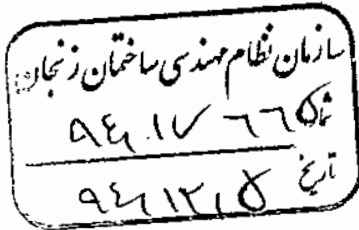 سازمان نظام مهندسی ساختمان زنجان
شماره ۹۴,۱۷۶۶۵
تاریخ ۹۴,۱۲,۵